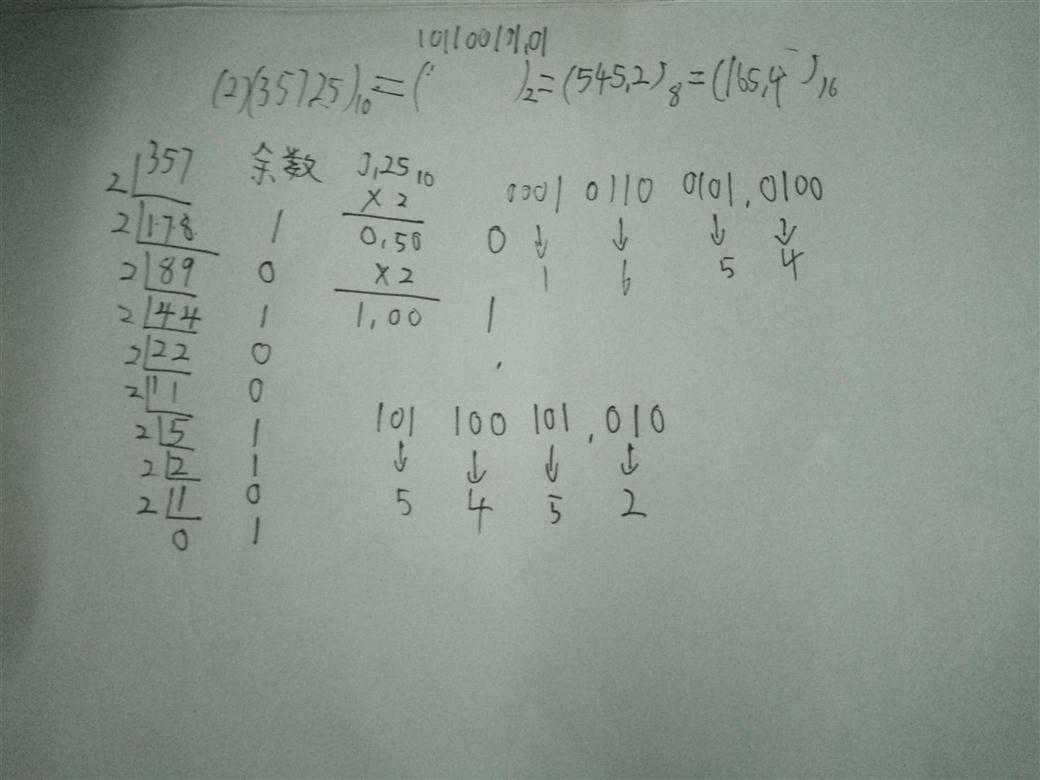 101100101.01
(2)(357.25)₁₀=( )₂=(545.2)₈=(165.4)₁₆
2 357 余数 0.25₁₀ 0001 0110 0101.0100
× 2
2 178 1 0.50 0 ↓ ↓ ↓ ↓
2 89 0 × 2 1 6 5 4
2 44 1 1.00 1
2 22 0
2 11 0
2 5 1 101 100 101.010
2 2 1 ↓ ↓ ↓ ↓
2 1 0 5 4 5 2
0 1